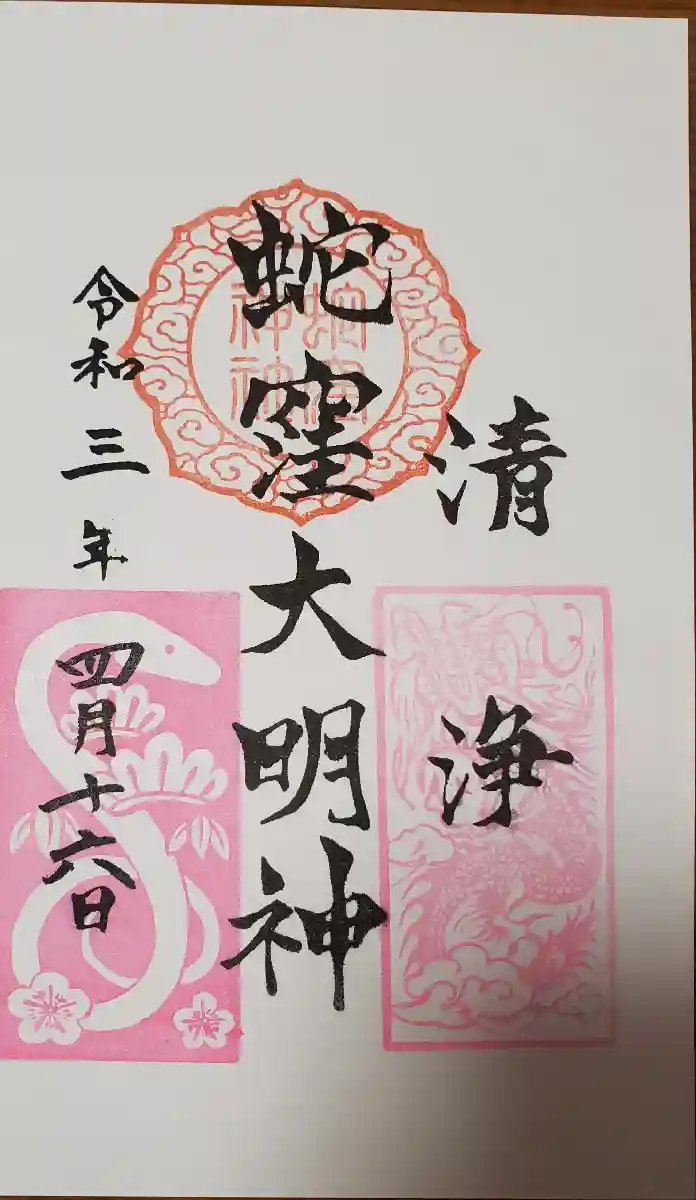 清浄
蛇窪大明神
令和三年四月十六日
蛇窪
神神